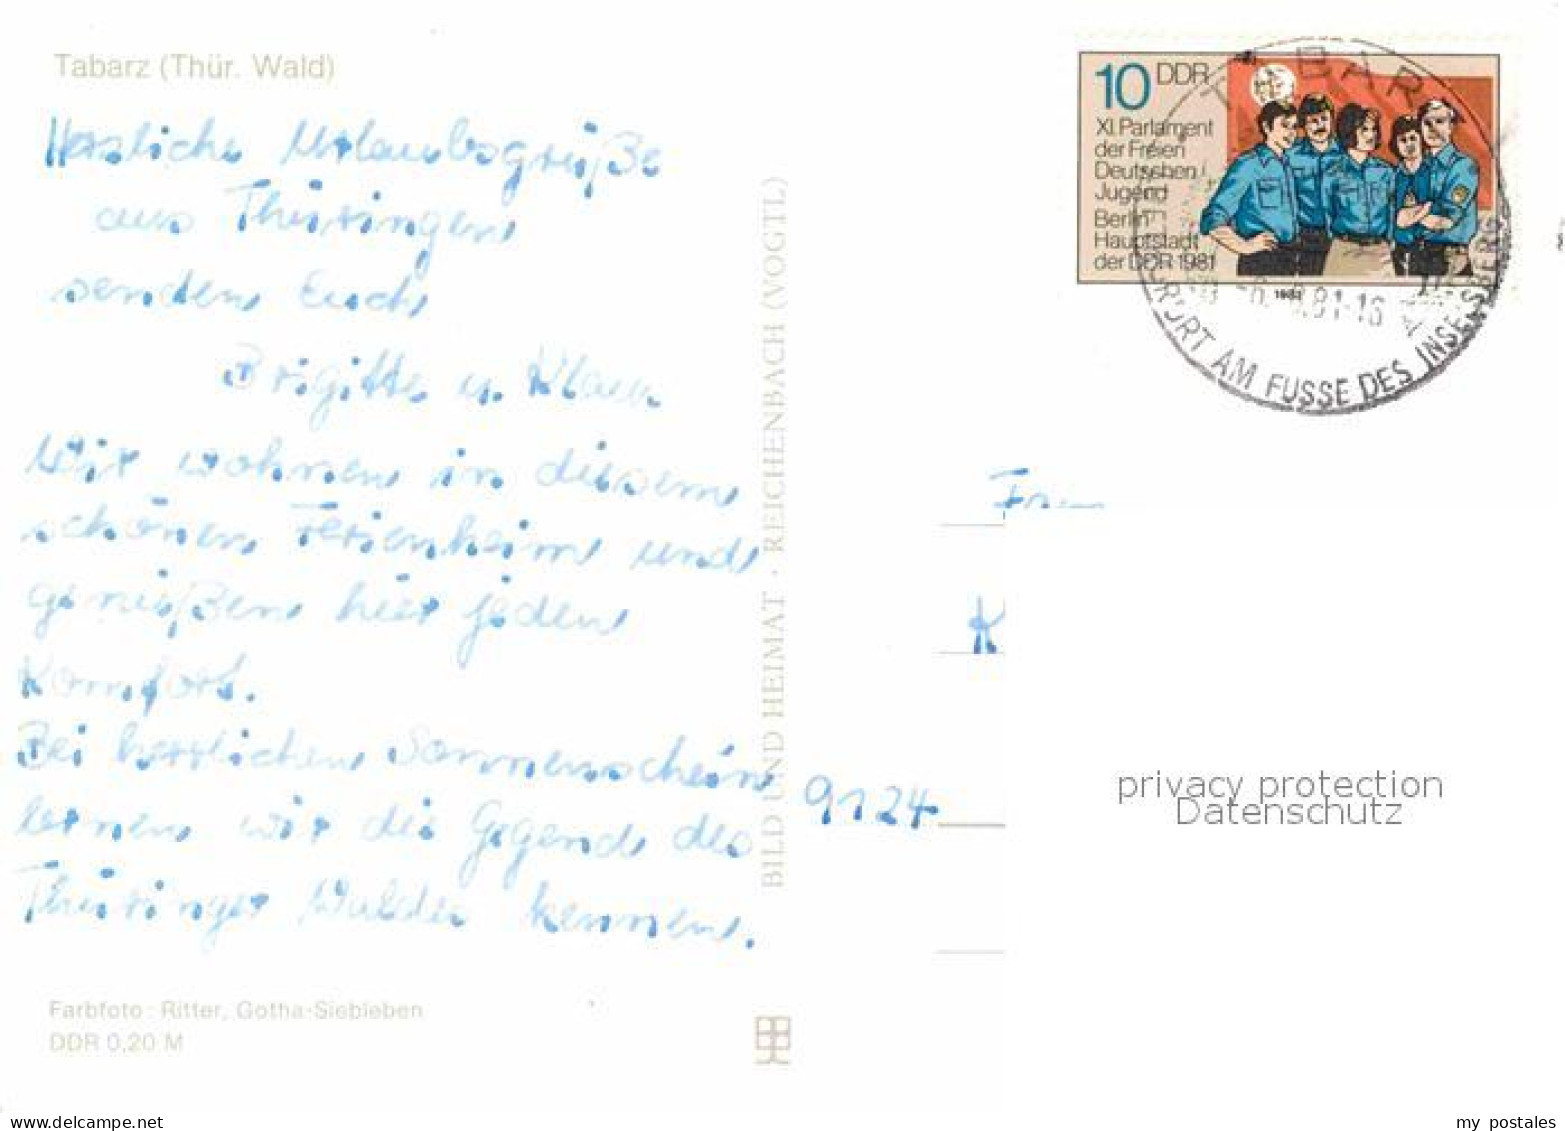 Tabarz (Thür. Wald)
Herzliche Urlaubsgrüße
aus Thüringen
senden Euch
Brigitte u. Klaus
Wir wohnen in diesem
schönen Ferienheim und
genießen hier jeden
Komfort.
Bei herrlichen Sonnenschein
lernen wir die Gegend des
Thüringer Waldes kennen.
Farbfoto: Ritter, Gotha-Siebleben
DDR 0,20 M
BILD UND HEIMAT · REICHENBACH (VOGTL)
10 DDR
XI. Parlament
der Freien
Deutschen
Jugend
Berlin
Hauptstadt
der DDR 1981
1981
TABARZ
81-16
KURORT AM FUSSE DES INSELSBERG
Frau
K
9124
privacy protection
Datenschutz
www.delcampe.net
my_postales